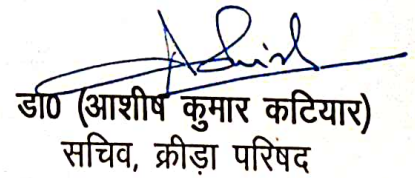 डा0 (आशीष कुमार कटियार)
सचिव, क्रीड़ा परिषद